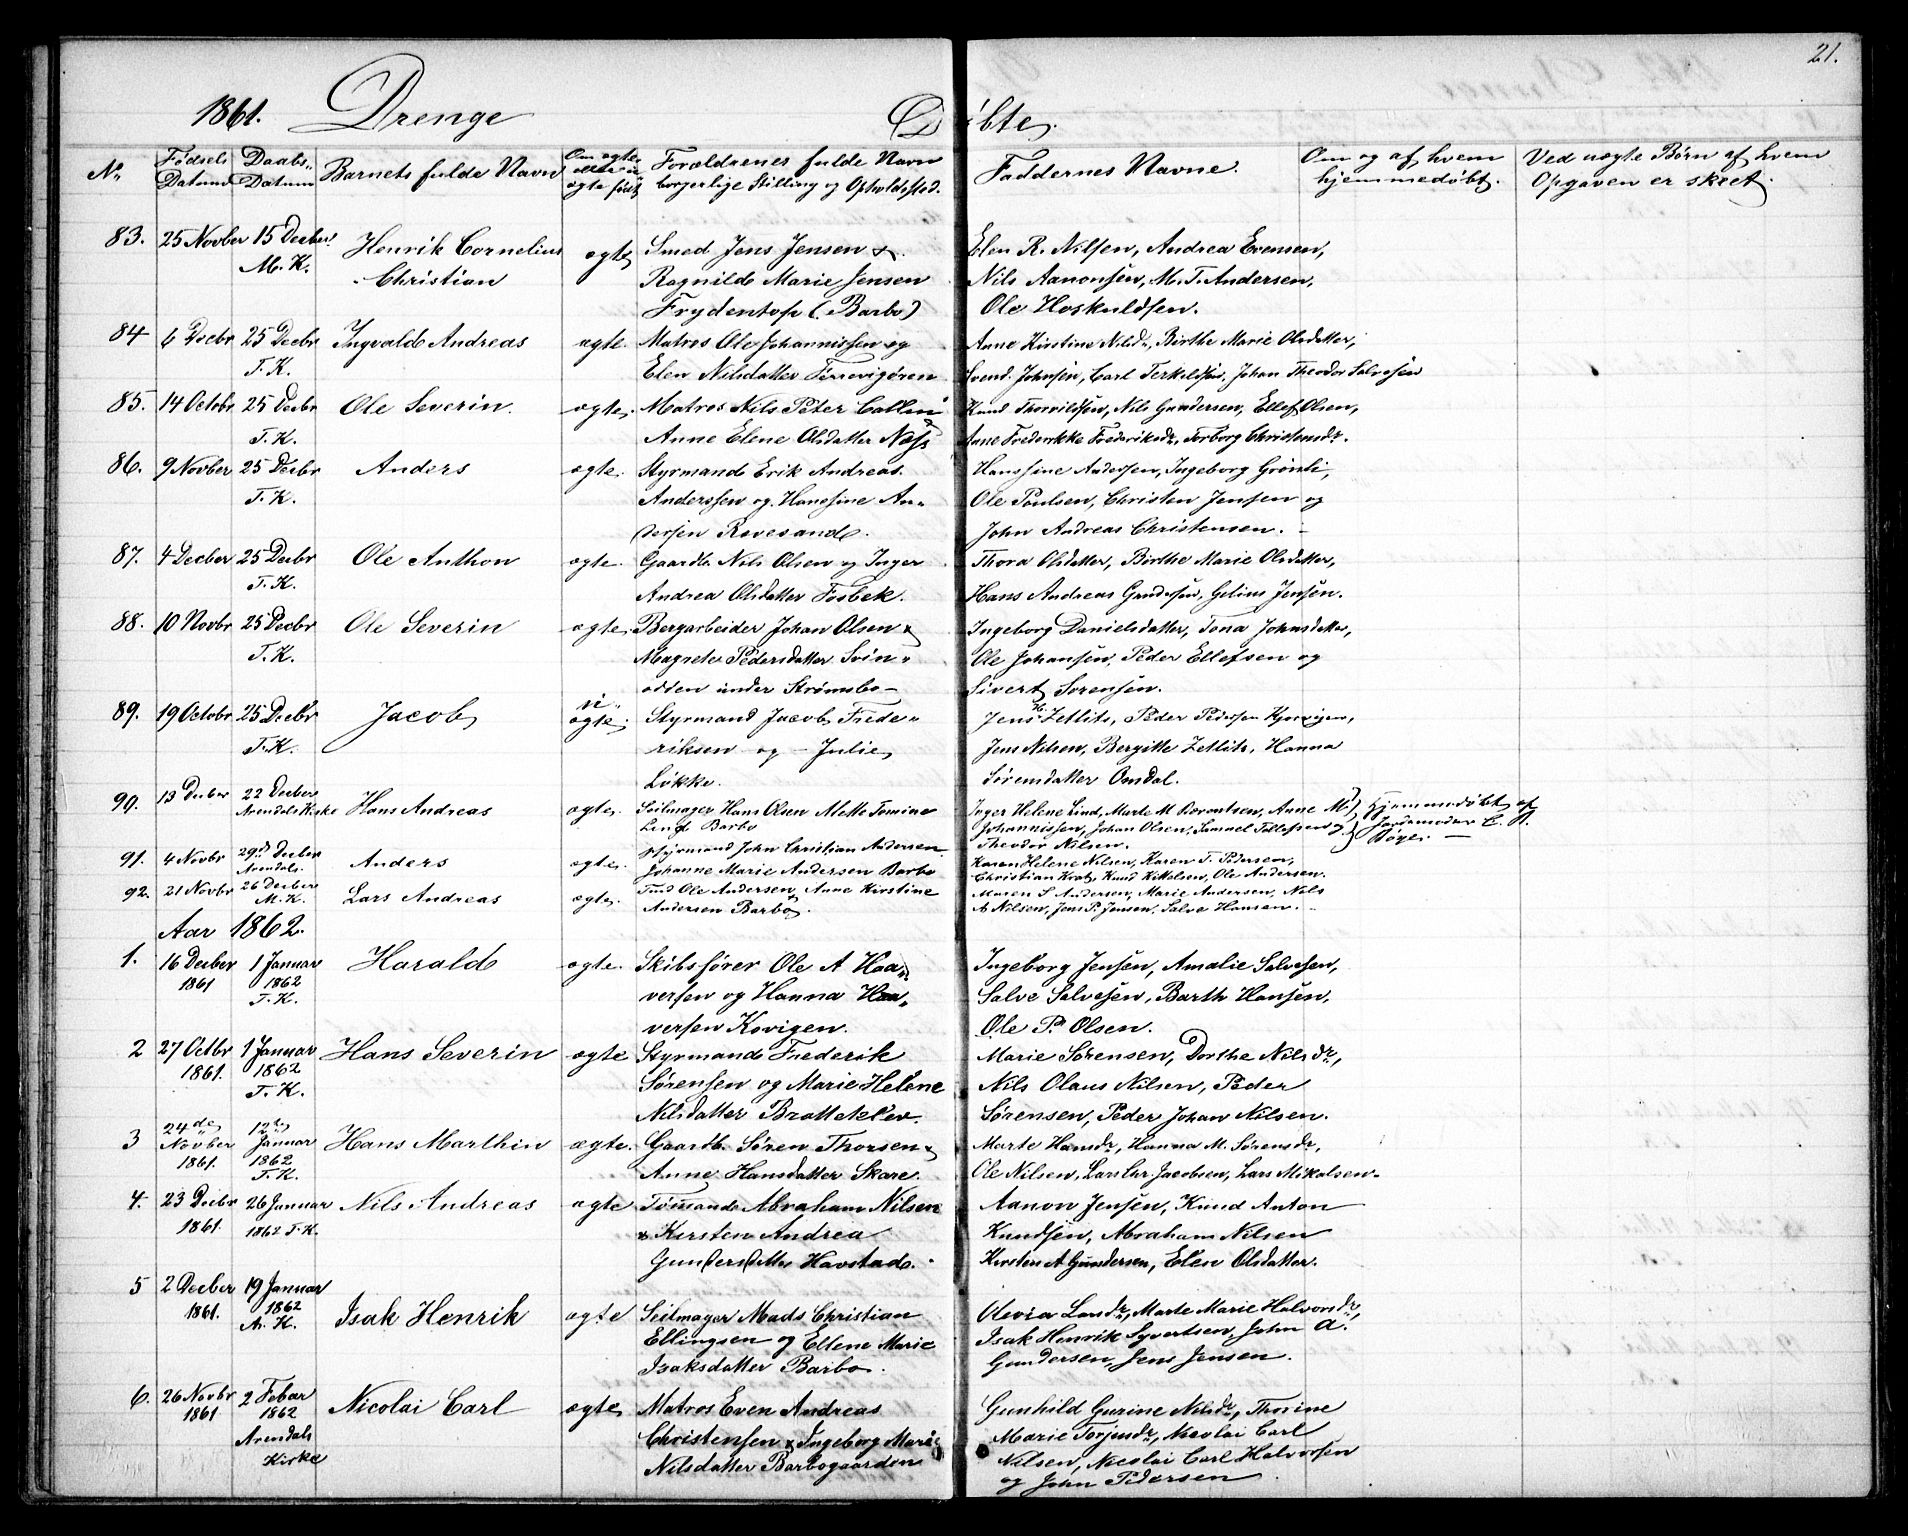 21.
1861. Drenge Døbte.
No Fødsels Datum Daabs Datum Barnets fulde Navn Om ægte eller uægte født Forældrenes fulde Navn borgerlige Stilling og Opholdssted. Faddernes Navne. Om og af hvem hjemmedøbt. Ved uægte Børn af hvem Opgaven er skeet.
83. 25 Novber 15 Decber Henrik Cornelius ægte Smed Jens Jensen & Elen R. Nilsen, Andrea Evensen,
M. K. Christian Ragnild Marie Jensen Nils Aanonsen, M. T. Andersen,
(Barbo) Ole Hoskuldsen.
84 6 Decbr 25 Decbr Ingvald Andreas ægte. Matros Ole Johannissen og Anne Kirstine Nilsdr, Birthe Marie Olsdatter,
T. K. Elen Nilsdatter Svend Johnsen, Carl Terkelsen, Johan Theodor Salvesen
85. 14 Octobr 25 Decbr Ole Severin. ægte. Matros Nils Peter Knud Thorvildsen, Nils Gundersen, Ellef Olsen,
T. K. Anne Elene Olsdatter Næs Anne Frederikke Frederiksdr, Torborg Christensdr.
86. 9 Novber 25 Decbr Anders ægte. Styrmand Erik Andreas Hanssine Andersen, Ingeborg
T. K. Anderssen og Hanssine An- Ole Poulsen, Christen Jensen og
dersen Revesand. John Andreas Christensen.
87. 4 Decber 25 Decbr Ole Anthon ægte. Gaardb. Nils Olsen og Inger Thora Olsdatter, Birthe Marie Olsdatter,
T. K. Andrea Olsdatter Fosbek. Hans Andreas Gundersen, Jensen.
88. 10 Novbr 25 Decbr Ole Severin ægte. Bergarbeider Johan Olsen & Ingeborg Danielsdatter, Tona Johnsdatter,
T. K. Magrete Pedersdatter Svin- Ole Johansen, Peder Ellefsen og
odden under Strømsbo- Sivert Sorensen.
89. 19 Octobr 25 Decbr Jacob uægte. Styrmand Jacob Frede- Jens H. Zetlitz, Peder Pedersen
T. K. riksen og Julie Jens Nilsen, Bergitte Zetlitz, Hanna
Løkke. Sørensdatter Omdal.
90. 13 Decber 22 Decber Hans Andreas ægte. Seilmager Hans Olsen Mette Tomine Inger Helene Lind, Marte M. Berentsen, Anne M. Hjemmedøbt af
Arendals Kirke Lind Barbo Johannissen, Johan Olsen, Samuel Tellefsen og Jordemoder C. P.
Theodor Nilsen. Bøge.
91. 4 Novbr 29de Decber Anders ægte. Styrmand John Christian Andersen Karen Helene Nilsen, Karen T. Pedersen,
Arendals. Johanne Marie Andersen Barbo Christian Knud Kittelsen, Ole Andersen.
92. 21 Novbr 26 Decber Lars Andreas ægte. Ole Andersen, Anne Kirstine Maren S Andersen, Marie Andersen, Nils
M. K. Andersen Barbo. A Nilsen, Jens P. Jensen, Salve Hansen.
Aar 1862.
1. 16 Decber 1 Januar Harald ægte. Skibsfører Ole A Haa- Ingeborg Jensen, Amalie Salvesen,
1861 1862 versen og Hanna Haa- Salve Salvesen, Barth Hansen,
T. K. versen Kovigen. Ole P. Olsen.
2 27 Octbr 1 Januar Hans Severin ægte Styrmand Frederik Marie Sørensen, Dorthe Nilsdr,
1861. 1862 Sørensen og Marie Helene Nils Olaus Nilsen, Peder
T. K. Nilsdatter Brattekley. Sørensen, Peder Johan Nilsen.
3 24de Novber 12te Januar Hans Marthin ægte. Gaardb. Søren Thorsen & Marte Hansdr, Hanna M. Sørensdr,
1861. 1862 T. K. Anne Hansdatter Skare. Ole Nilsen, Lars Chr. Jacobsen, Lars Mikalsen.
4. 23 Decbr 26 Januar Nils Andreas ægte Tømmand Abraham Nilsen Aanon Jensen, Knud Anton
1861. 1862 T. K. & Kirsten Andrea Knudsen, Abraham Nilsen
Gundersdatter Havstad. Kirsten A Gundersen, Elen Olsdatter.
5 2 Decber 19 Januar Isak Henrik ægte Seilmager Mads Christian Olevia Marte Marie Halvorsdr,
1861. 1862 Ellingsen og Ellene Marie Isak Henrik Syvertsen, John A.
A. K. Isaksdatter Barbo. Gundersen, Jens Jensen.
6. 26 Novbr 2 Febar Nicolai Carl ægte Matros Even Andreas Gunhild Gurine Nilsdr, Thorine
1861 1862 Christensen & Ingeborg Marie Marie Torjusdr, Nicolai Carl
Arendals Nilsdatter Barbogaarden Nilsen, Nicolai Carl Halvorsen
Kirke og John Pedersen